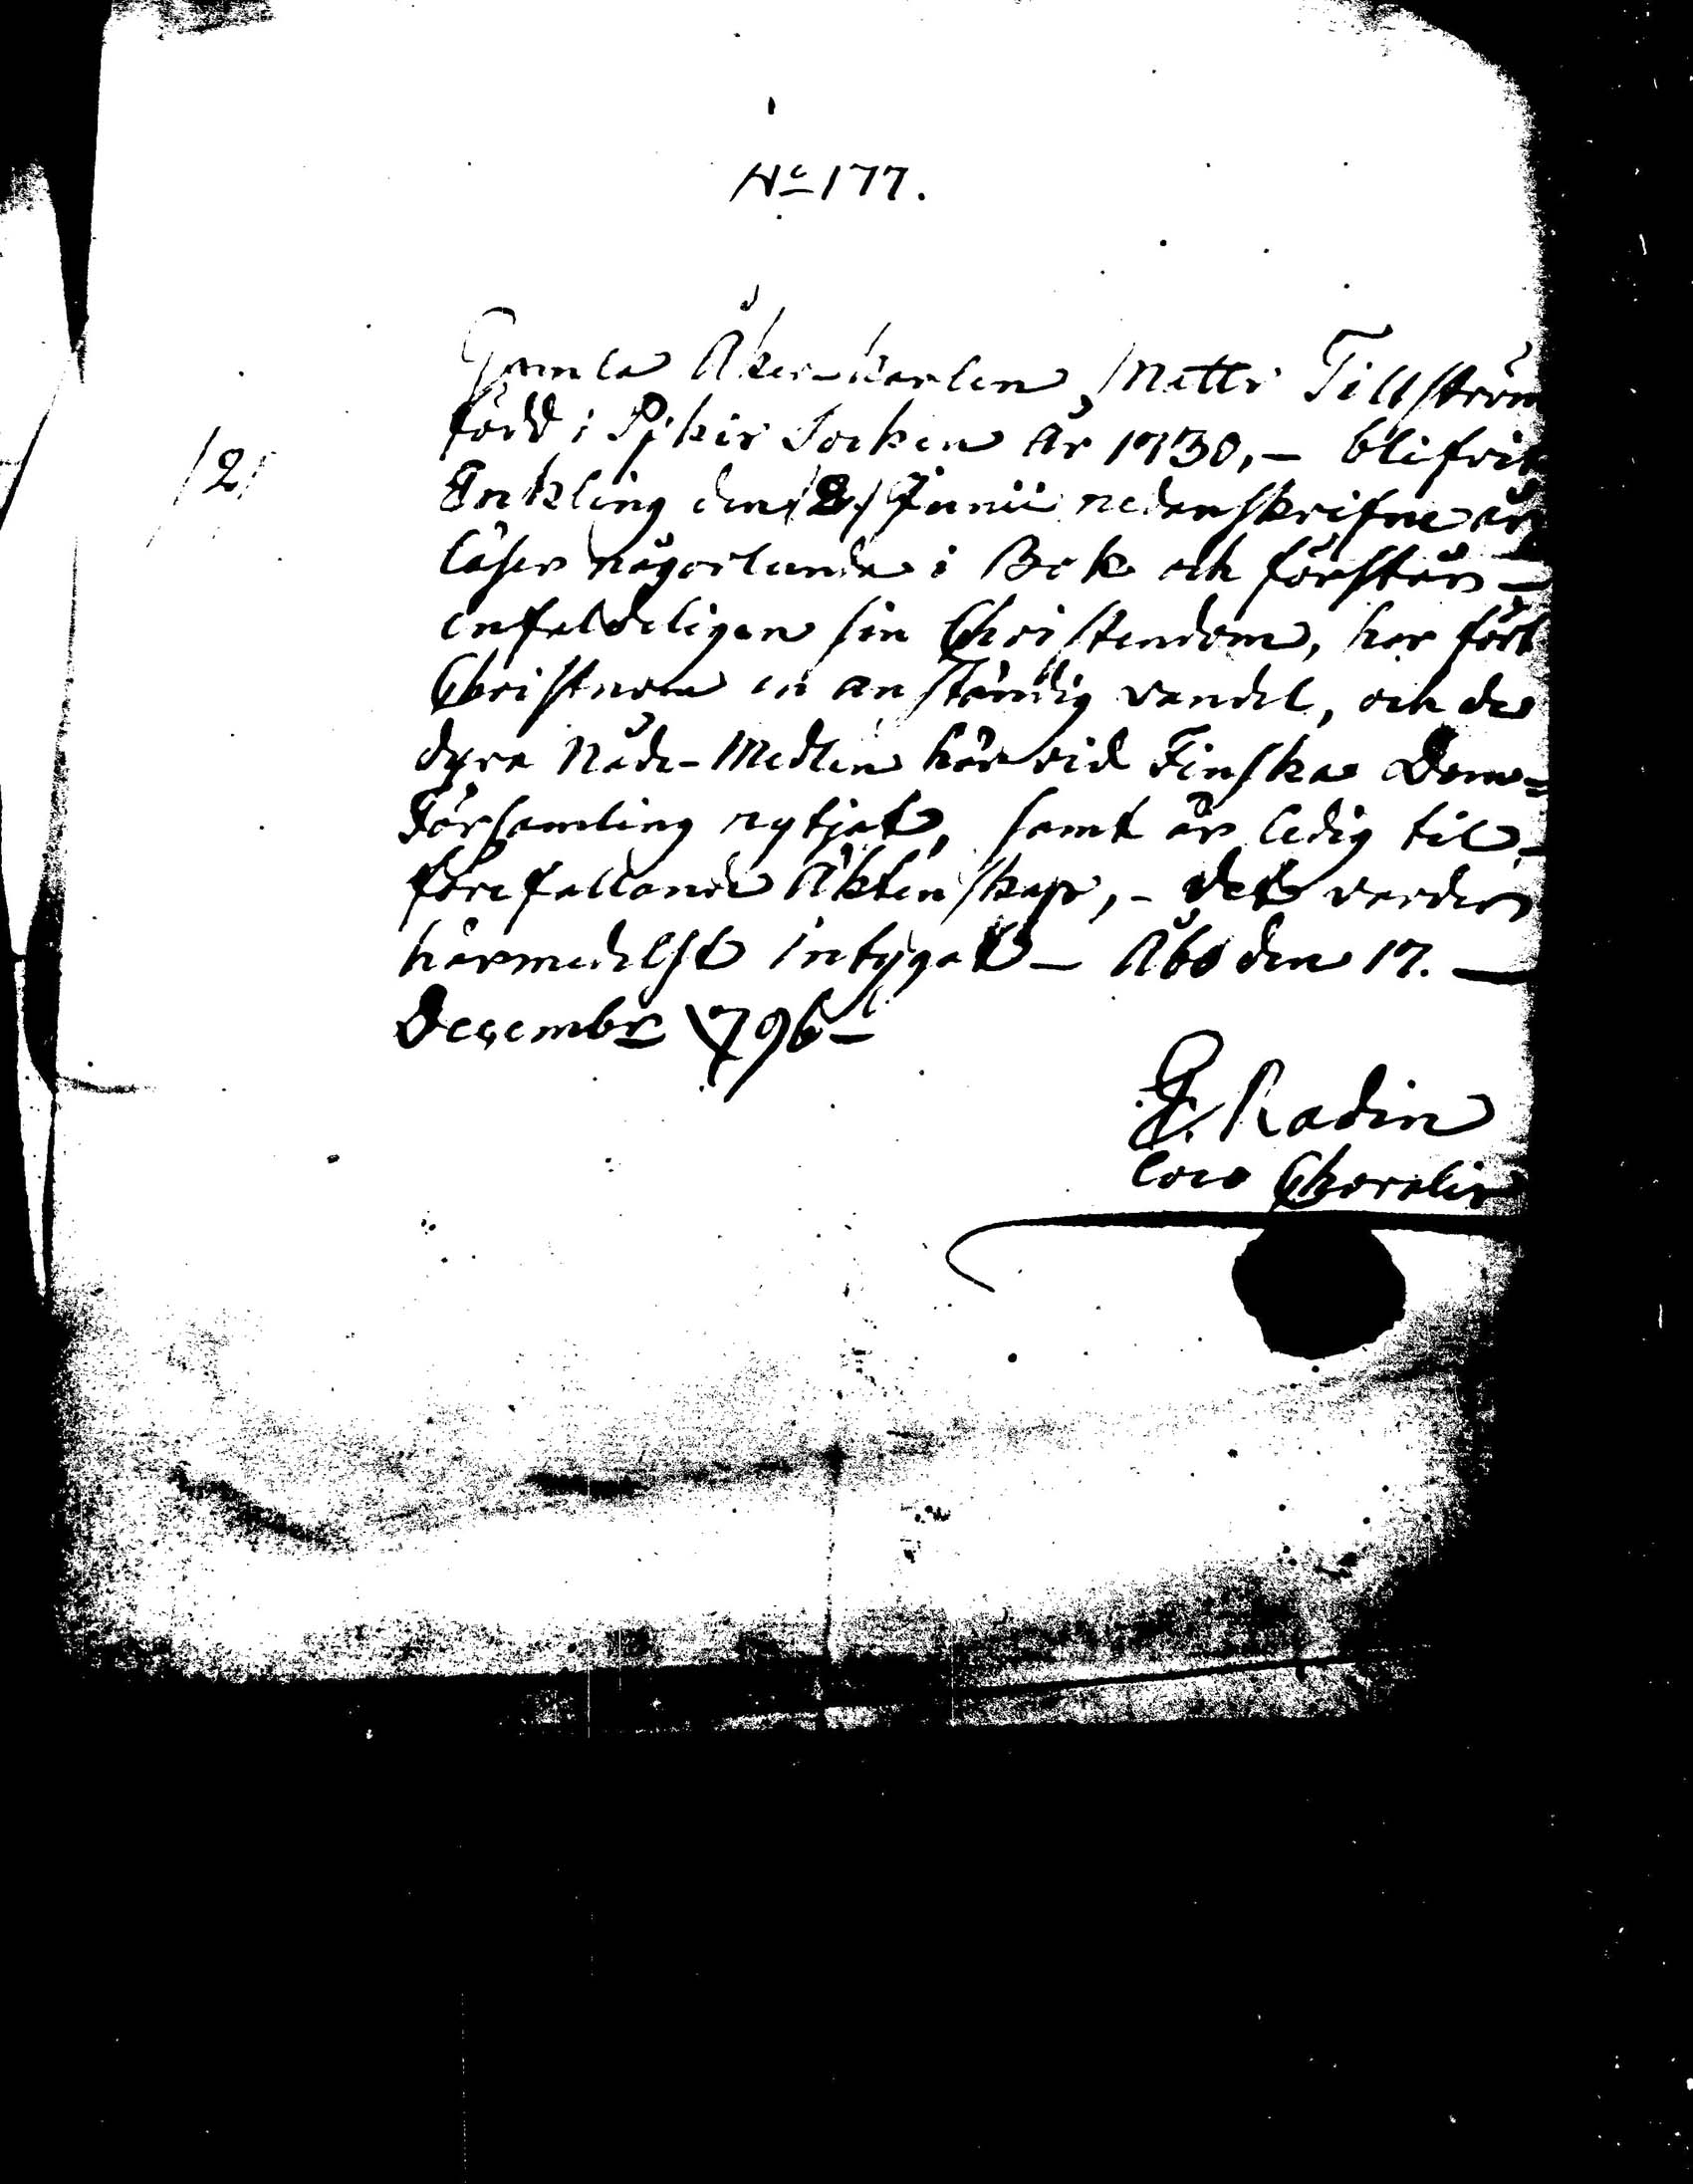 No 177.
Gamla Åker-karlen Matts Tillström
född i Pijkis Socken År 1730, – blifvit
/2/
Enkling den /2./ Junii nedanskrifne år
läser någorlunda i Bok och förstår –
enfaldeligen sin Christendom, har fört
Christnom en anständig vandel, och de
dyra Nåde-Medlen här vid Finska Dom=
Församling nytjat, samt är ledig til –
förefallande Äktenskap, – det varder
härmedelst intygat – Åbo den 17. –
Decembr 1796 –
G. Radin
loco Choralis